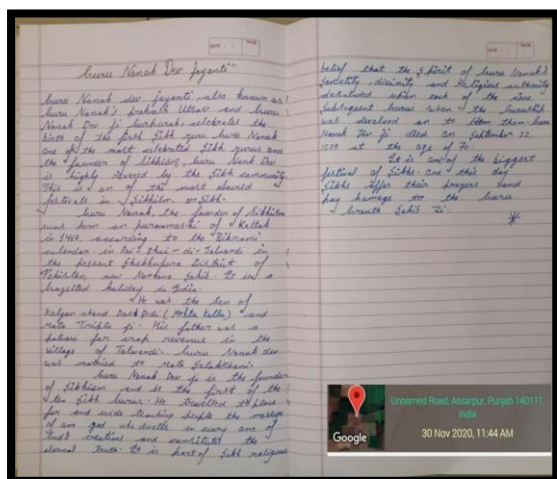 DATE: / / PAGE
Guru Nanak Dev Jayanti"
Guru Nanak dev jayanti, also known as
Guru Nanak's prakash Utsav and Guru
Nanak Dev ji Gurpurab, celebrates the
birth of the first Sikh guru, Guru Nanak
One of the most celebrated Sikh gurus and
the founder of Sikhism, Guru Nank Dev
is highly revered by the Sikh community
This is on of the most sacred
festivals in Sikhism, or Sikh.
Guru Nanak, the founder of Sikhism
was born on puranmashi of Kattak
in 1469, according to the Bikrami
calendar in Rai-Bhoi-di-Talwandi in
the present Shekhupura District of
Pakistan, now Nankana Sahib. It is a
Gazetted holiday in India.
He was the son of
Kalyan chand Das Bedi (Mehta Kallu) and
Mata Tripta ji. His father was a
patwari for crop revenue in the
village of Talwandi. Guru Nanak dev
was married to Mata Sulakkhani.
Guru Nanak Dev ji is the founder
of Sikhism and is the first of the
ten Sikh Gurus. He travelled to place
far and wide teaching people the message
of one god who dwells in every one of
God's creations and constitutes the
eternal Truth. It is part of Sikh religious
DATE: / / PAGE
belief that the spirit of Guru Nanak's
sanctity, divinity and religious authority
descended upon each of the nine
subsequent Gurus when the Guruship
was devolved on to them. Guru
Nanak Dev ji died on September 22,
1539 at the age of 70.
It is one of the biggest
festival of Sikhs. One this day
Sikhs offer their prayers and
pay homage to the Guru
Granth Sahib Ji.
Google
Unnamed Road, Assarpur, Punjab 140111,
India
30 Nov 2020, 11:44 AM